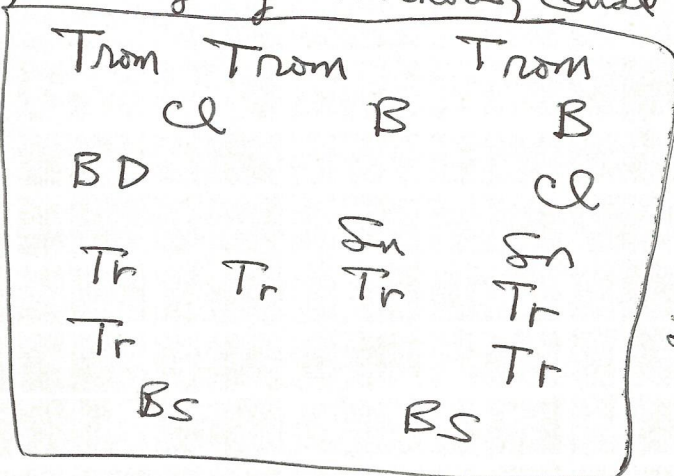 Trom Trom Trom
Cl B B
BD
Cl
Sn Sn
Tr Tr Tr Tr
Tr Tr
BS BS